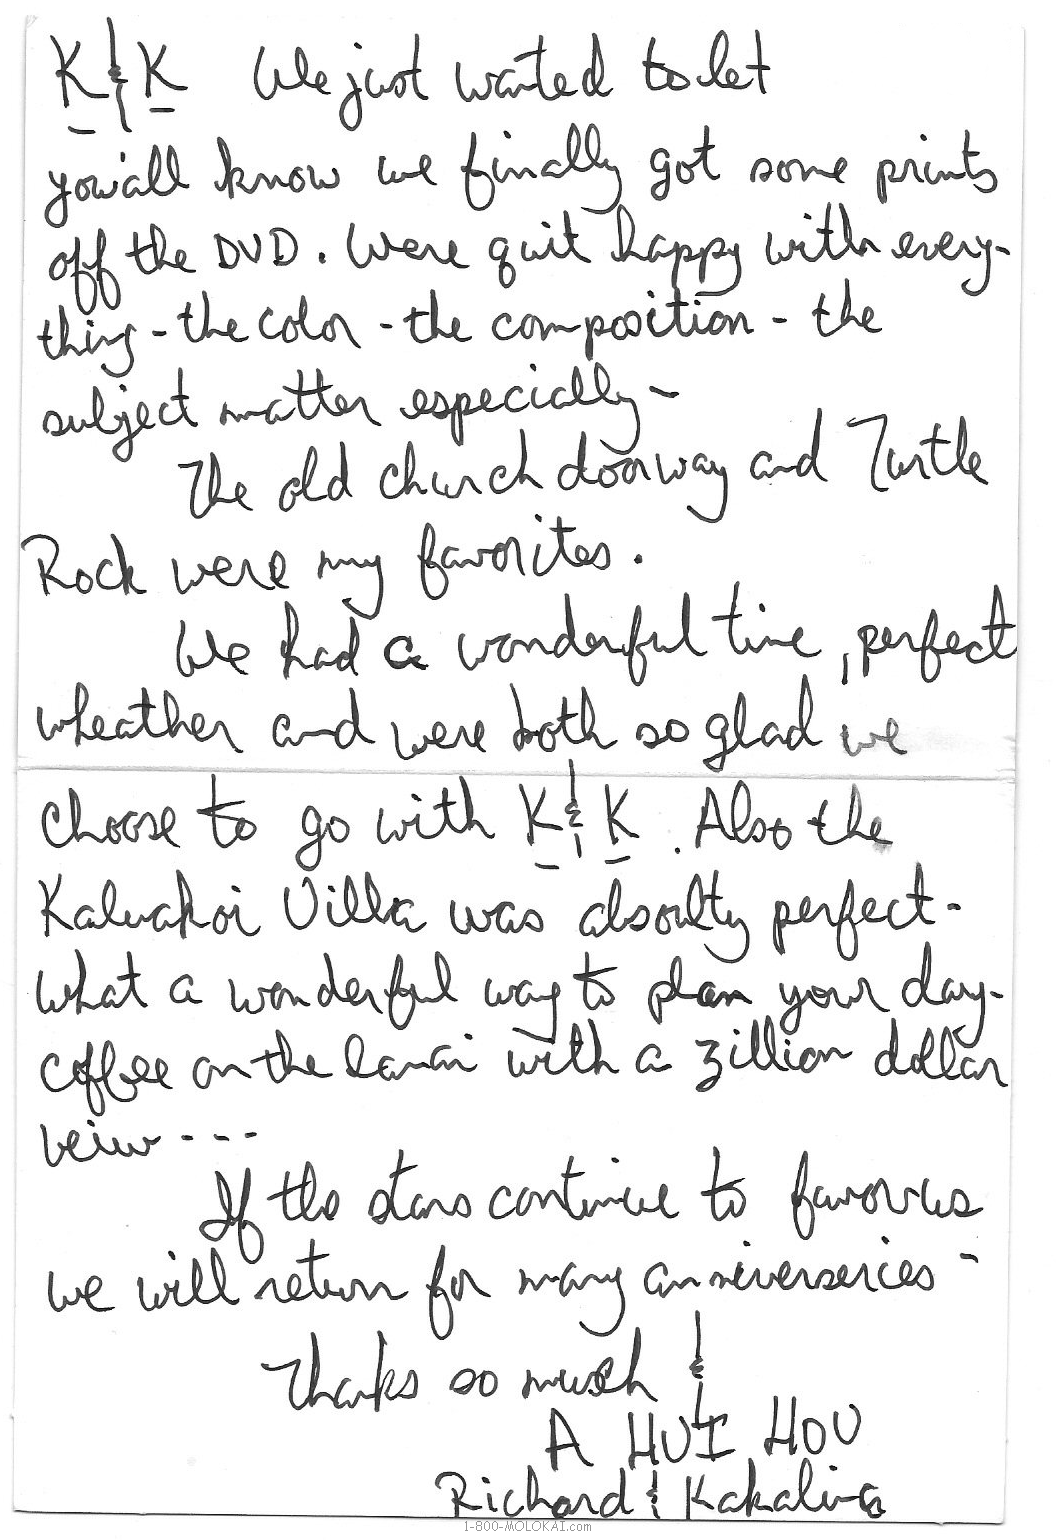 K & K We just wanted to let
you'all know we finally got some prints
off the DVD. Were quit happy with every-
thing - the color - the composition - the
subject matter especially -
The old church doorway and Turtle
Rock were my favorites.
We had a wonderful time, perfect
wheather and were both so glad we
choose to go with K & K. Also the
Kaluakoi Villa was absoulty perfect -
what a wonderful way to plan your day -
coffee on the lanai with a zillion dollar
veiw - - -
If the stars continue to favor us
we will return for many anniverseries -
Thanks so much &
A HUI HOU
Richard & Kakalina
1-800-MOLOKAI.com